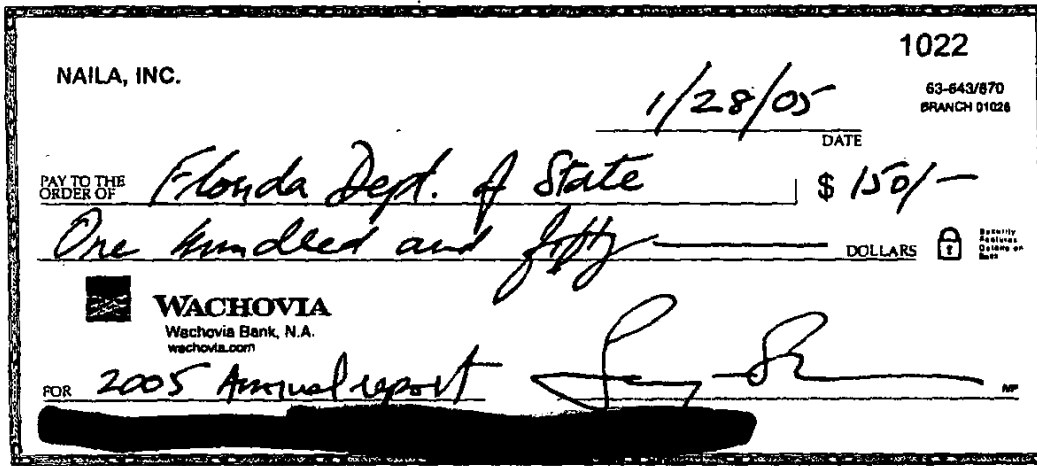 1022
NAILA, INC.
63-643/670
BRANCH 01026
1/28/05
DATE
PAY TO THE ORDER OF Florida Dept. of State $ 150/-
One hundred and fifty DOLLARS
Security Features Details on Back
WACHOVIA
Wachovia Bank, N.A.
wachovia.com
FOR 2005 Annual report
MP